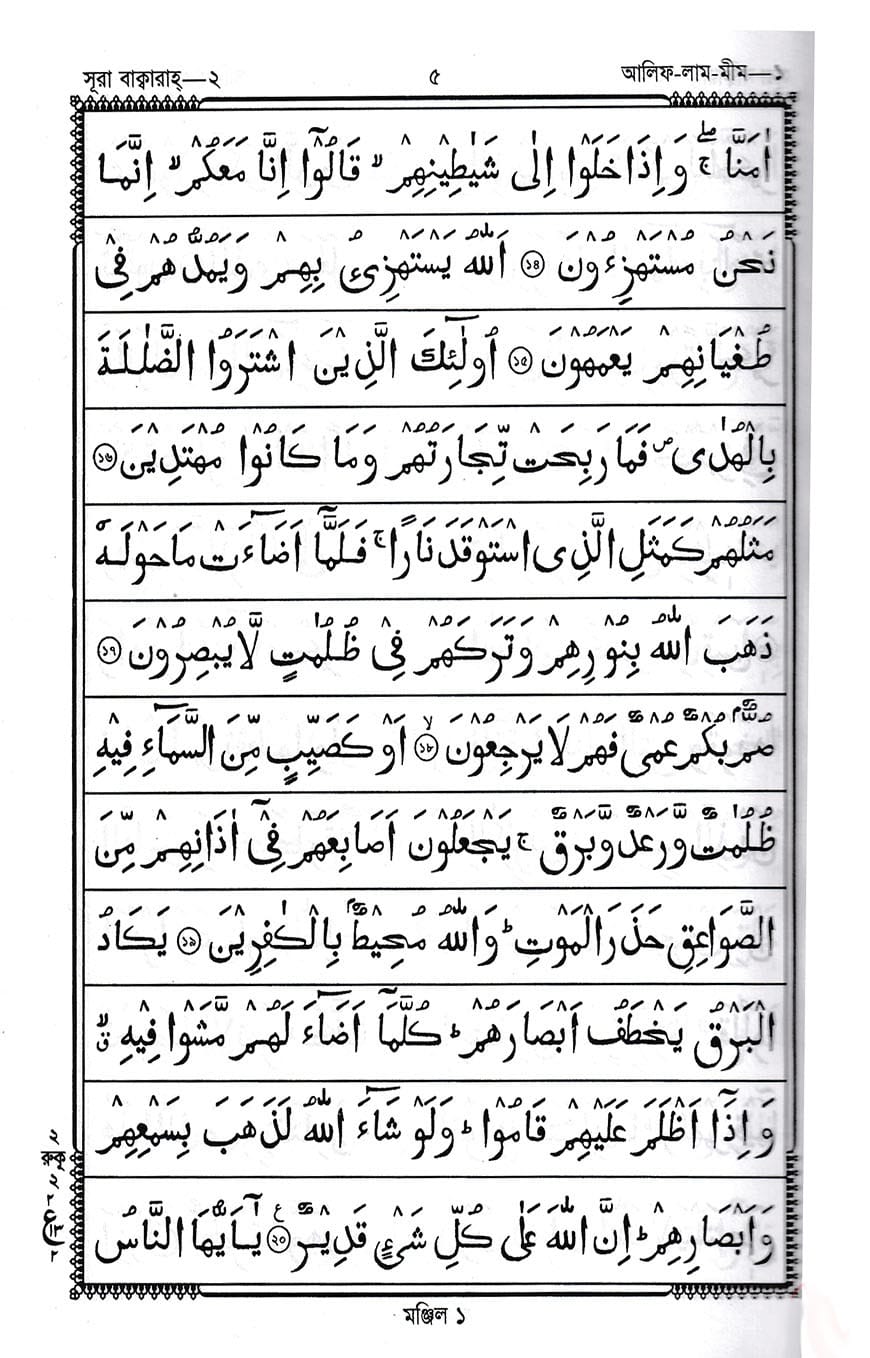 সূরা বাক্বারাহ্—২ ৫ আলিফ-লাম-মীম—১
اٰمَنَّا ۚۖ وَ اِذَا خَلَوْا اِلٰى شَيٰطِيْنِهِمْ ۙ قَالُوْٓا اِنَّا مَعَكُمْ ۙ اِنَّمَا
نَحْنُ مُسْتَهْزِءُوْنَ ১৪ اَللّٰهُ يَسْتَهْزِئُ بِهِمْ وَيَمُدُّهُمْ فِىْ
طُغْيَانِهِمْ يَعْمَهُوْنَ ১৫ اُولٰٓئِكَ الَّذِيْنَ اشْتَرَوُا الضَّلٰلَةَ
بِالْهُدٰى ص فَمَا رَبِحَتْ تِّجَارَتُهُمْ وَمَا كَانُوْا مُهْتَدِيْنَ ১৬
مَثَلُهُمْ كَمَثَلِ الَّذِى اسْتَوْقَدَ نَارًا ۚ فَلَمَّآ اَضَآءَتْ مَا حَوْلَهٗ
ذَهَبَ اللّٰهُ بِنُوْرِهِمْ وَتَرَكَهُمْ فِىْ ظُلُمٰتٍ لَّا يُبْصِرُوْنَ ১৭
صُمٌّۢ بُكْمٌ عُمْىٌ فَهُمْ لَا يَرْجِعُوْنَ ১৮ اَوْ كَصَيِّبٍ مِّنَ السَّمَآءِ فِيْهِ
ظُلُمٰتٌ وَّرَعْدٌ وَّبَرْقٌ ۚ يَجْعَلُوْنَ اَصَابِعَهُمْ فِىْٓ اٰذَانِهِمْ مِّنَ
الصَّوَاعِقِ حَذَرَ الْمَوْتِ ؕ وَاللّٰهُ مُحِيْطٌۢ بِالْكٰفِرِيْنَ ১৯ يَكَادُ
الْبَرْقُ يَخْطَفُ اَبْصَارَهُمْ ؕ كُلَّمَآ اَضَآءَ لَهُمْ مَّشَوْا فِيْهِ ۙق
وَاِذَآ اَظْلَمَ عَلَيْهِمْ قَامُوْا ؕ وَلَوْ شَآءَ اللّٰهُ لَذَهَبَ بِسَمْعِهِمْ
وَاَبْصَارِهِمْ ؕ اِنَّ اللّٰهَ عَلٰى كُلِّ شَىْءٍ قَدِيْرٌ ২০ ع يٰٓاَيُّهَا النَّاسُ
মঞ্জিল ১